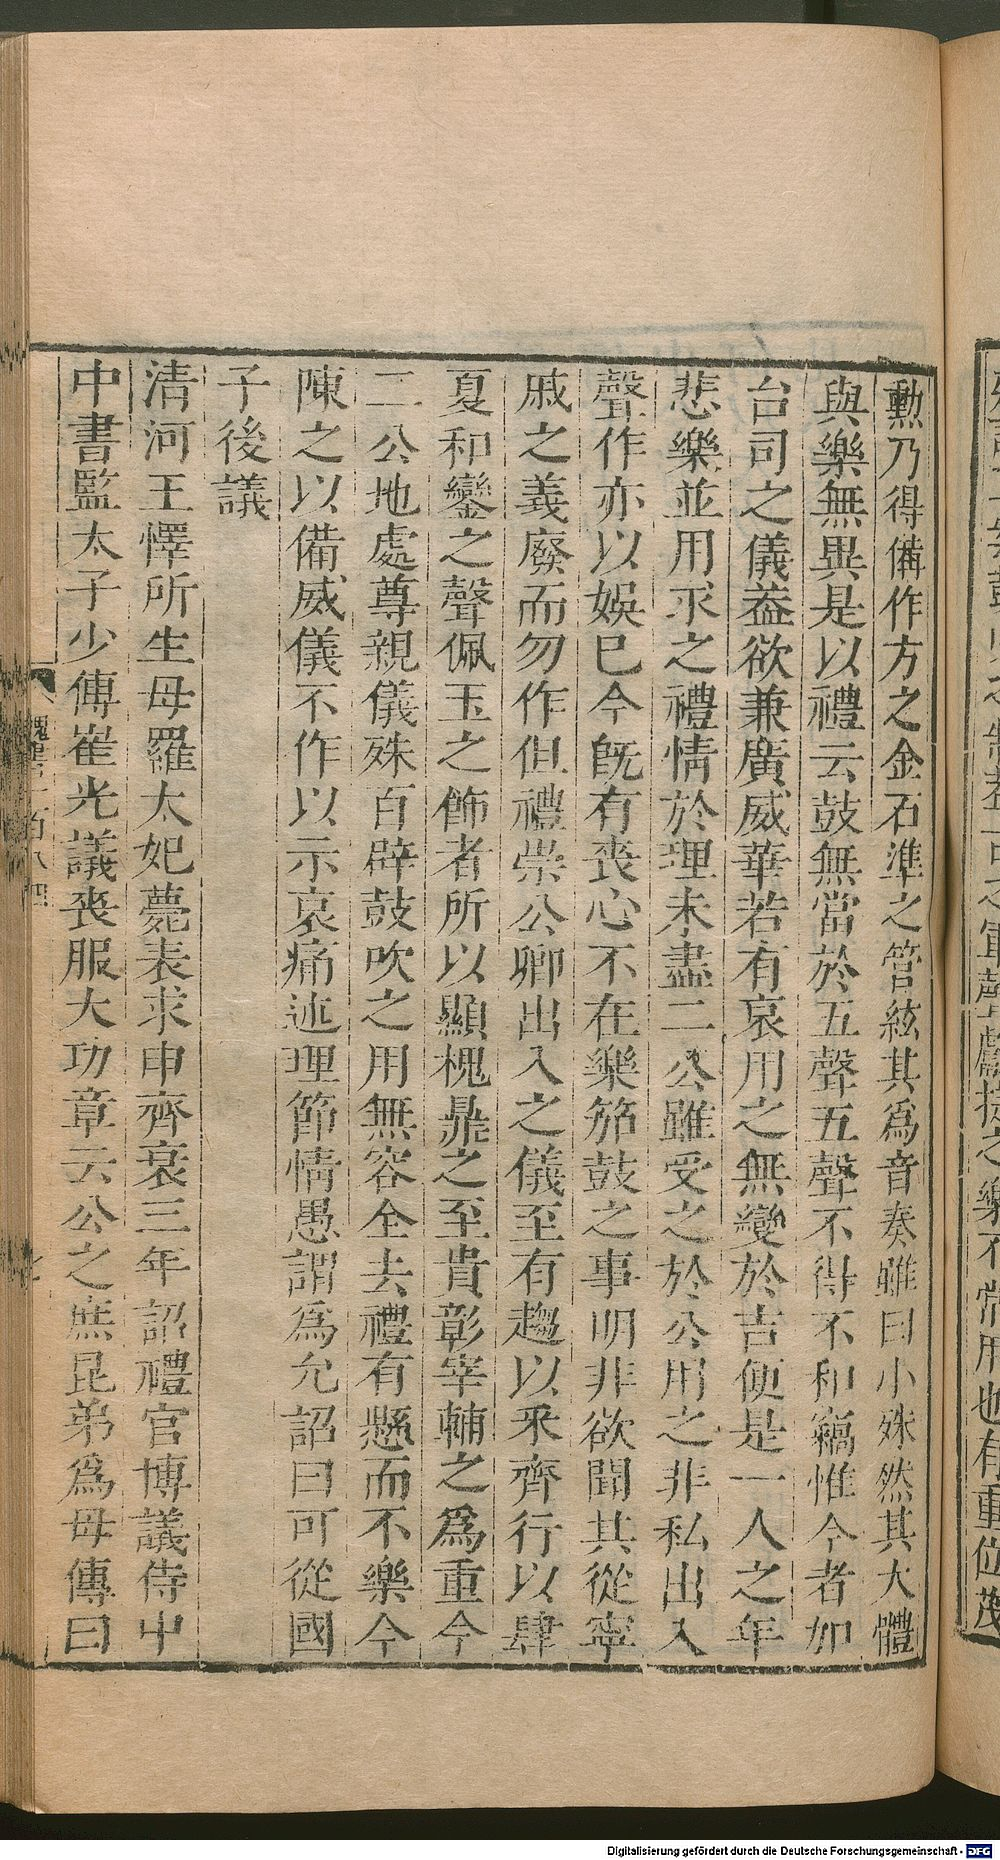 勳乃得備作方之金石準之管絃其爲音奏雖曰小殊然其大體
與樂無異是以禮云鼓無當於五聲五聲不得不和竊惟今者加
台司之儀蓋欲兼廣威華若有哀用之無變於吉便是一人之年
悲樂並用求之禮情於理未盡二公雖受之於公用之非私出入
聲作亦以娛己今旣有喪心不在樂笳鼓之事明非欲聞其從寧
戚之義廢而勿作但禮崇公卿出入之儀至有趨以采齊行以肆
夏和鑾之聲佩玉之飾者所以顯槐鼎之至貴彰宰輔之爲重今
二公地處尊親儀殊百辟鼓吹之用無容全去禮有懸而不樂今
陳之以備威儀不作以示哀痛述理節情愚謂爲允詔曰可從國
子後議
清河王懌所生母羅太妃薨表求申齊衰三年詔禮官博議侍中
中書監太子少傅崔光議喪服大功章云公之庶昆弟爲母傳曰
魏書一百八四
Digitalisierung gefördert durch die Deutsche Forschungsgemeinschaft - DFG